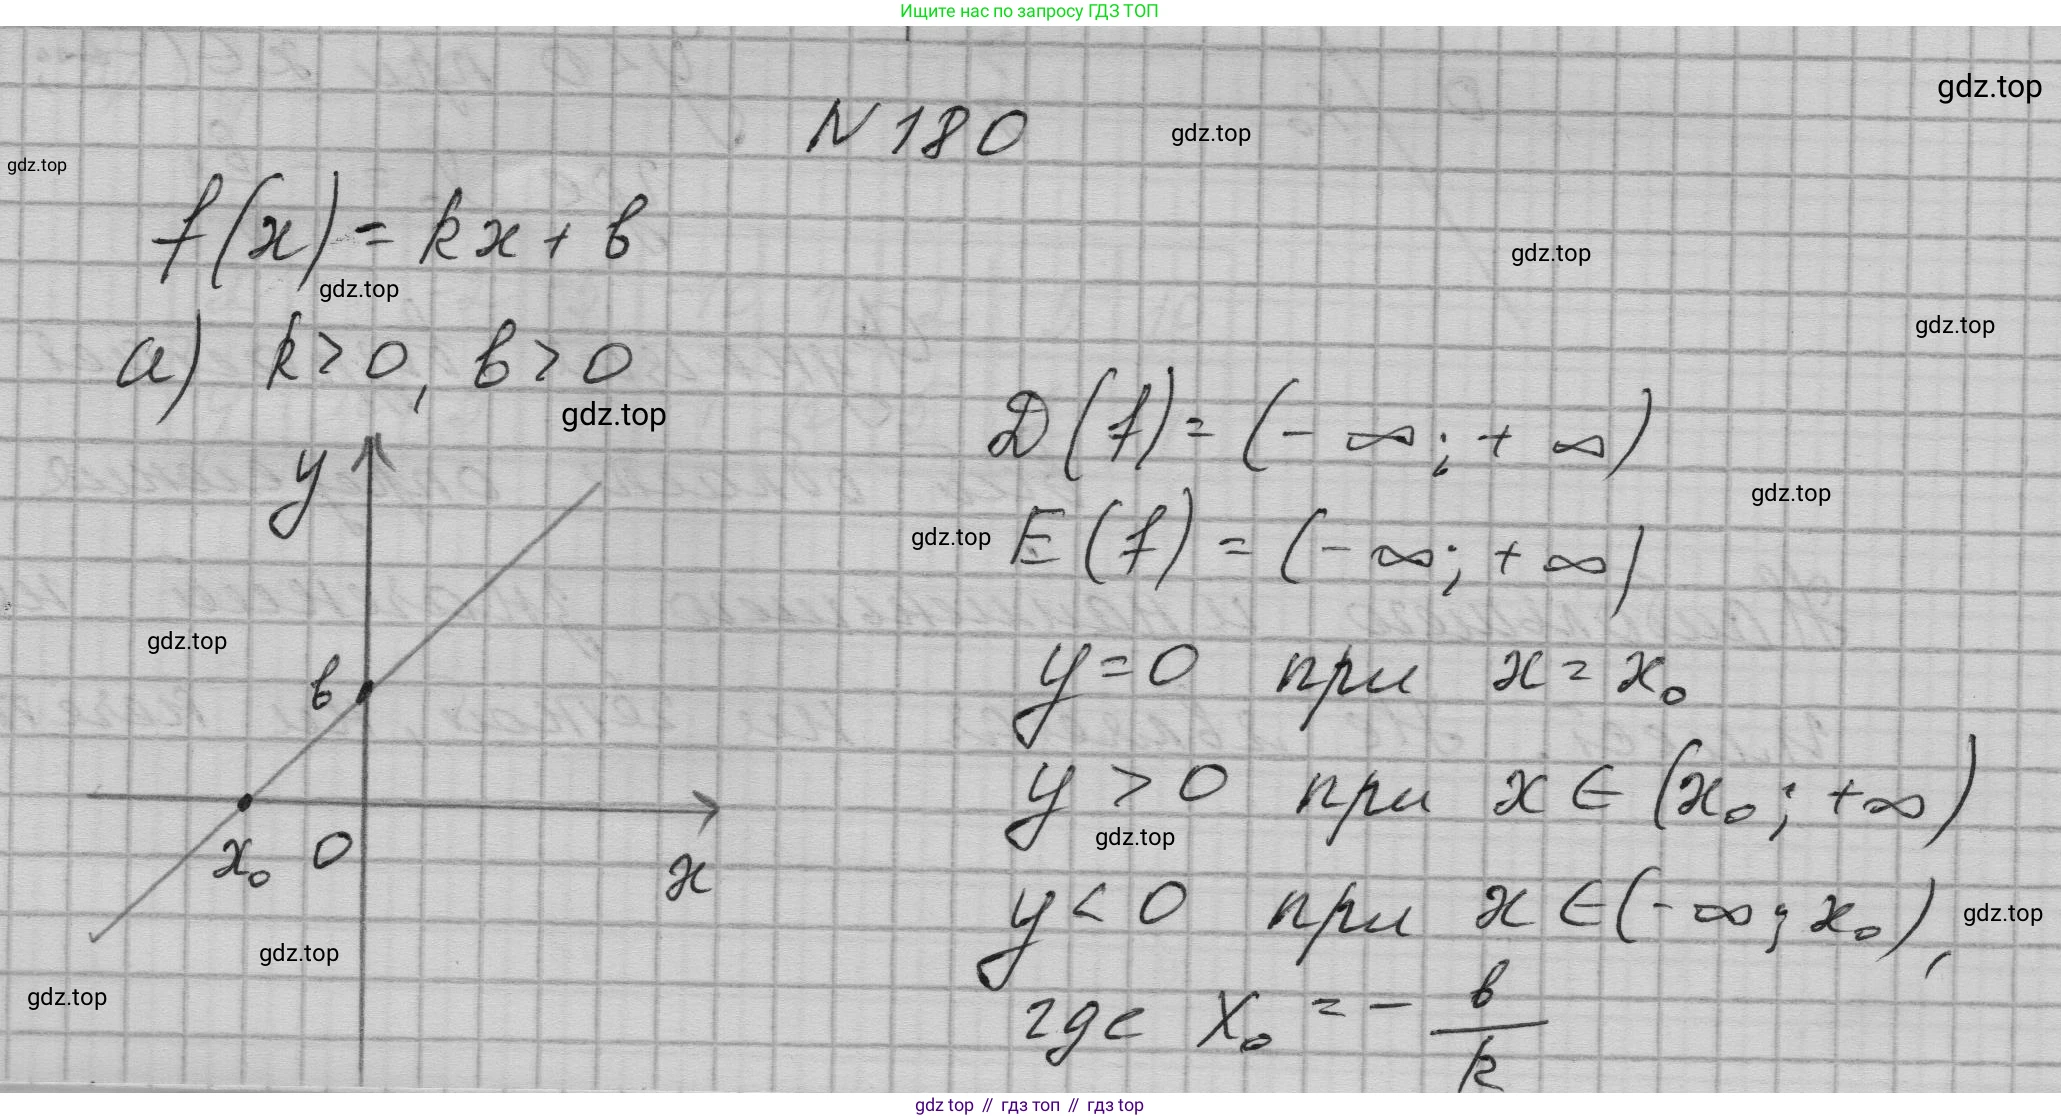 Ищите нас по запросу ГДЗ ТОП
gdz.top
N 180
gdz.top
gdz.top
f(x) = kx + b
gdz.top
gdz.top
gdz.top
а) k > 0, b > 0
gdz.top
D(f) = (- ∞; + ∞)
gdz.top
gdz.top
E(f) = (- ∞; + ∞)
y
gdz.top
b
y = 0 при x = x₀
y > 0 при x ∈ (x₀; +∞)
gdz.top
x₀ 0
x
y < 0 при x ∈ (- ∞; x₀),
gdz.top
gdz.top
gdz.top
где x₀ = - b/k
gdz top // гдз топ // гдз top